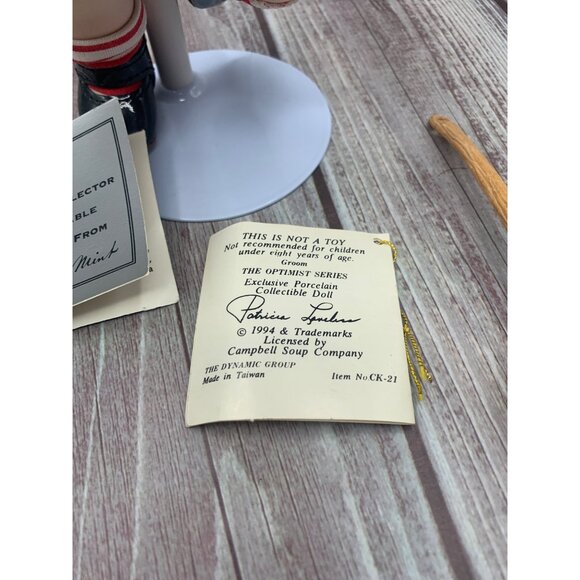 LECTOR
BLE
FROM
Mint
THIS IS NOT A TOY
Not recommended for children
under eight years of age.
Groom
THE OPTIMIST SERIES
Exclusive Porcelain
Collectible Doll
Patricia Loveless
© 1994 & Trademarks
Licensed by
Campbell Soup Company
THE DYNAMIC GROUP
Made in Taiwan
Item No.CK-21